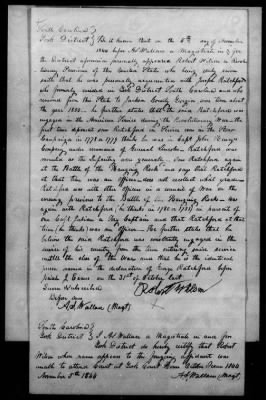 South Carolina }
York District } Be it known that on the 8th day of November
1844 before A S Wallace a Magistrate in & for
the District aforesaid personally appeared Robert Wilson a Revolutionary
Pensioner of the United States who being duly sworn
saith that he was personally acquainted with Joseph Ratchford
who formerly resided in York District South Carolina and who
removed from this State to Jackson County Georgia some time about
the year 1800. he further states that the said Ratchford was
engaged in the American Service during the Revolutionary War the
first time deponent saw Ratchford in Service was in the
Campaign in 1778 & 1779 thinks he was in Capt John
Company under command of General Lincoln Ratchford com-
manded as the deponent saw Ratchford again
at the Battle of the Hanging Rock and says that Ratchford
at that time was an officer does not recollect what grade
Ratchford was with other officers in a council of War on the
evening previous to the Battle of the Hanging Rock was
again with Ratchford (he thinks in 1780 or 1781) in pursuit of
one Capt a Tory Captain and that Ratchford at that
time (he thinks) was an officer He further states that he
believes the said Ratchford was constantly engaged in the
service of his country from the time entering said service
until the close of the War and that he is the identical
person named in the declaration of Ratchford before
on the 31st of October last
Sworn & subscribed
Before me
A S Wallace (Magt)
Robert Wilson
South Carolina }
York District } I A S Wallace a Magistrate in and for
York District do hereby certify that Robert
Wilson whose name appears to the foregoing affidavit was
unable to attend Court at York Court House October Term 1844
November 8th 1844
A S Wallace (Magt)